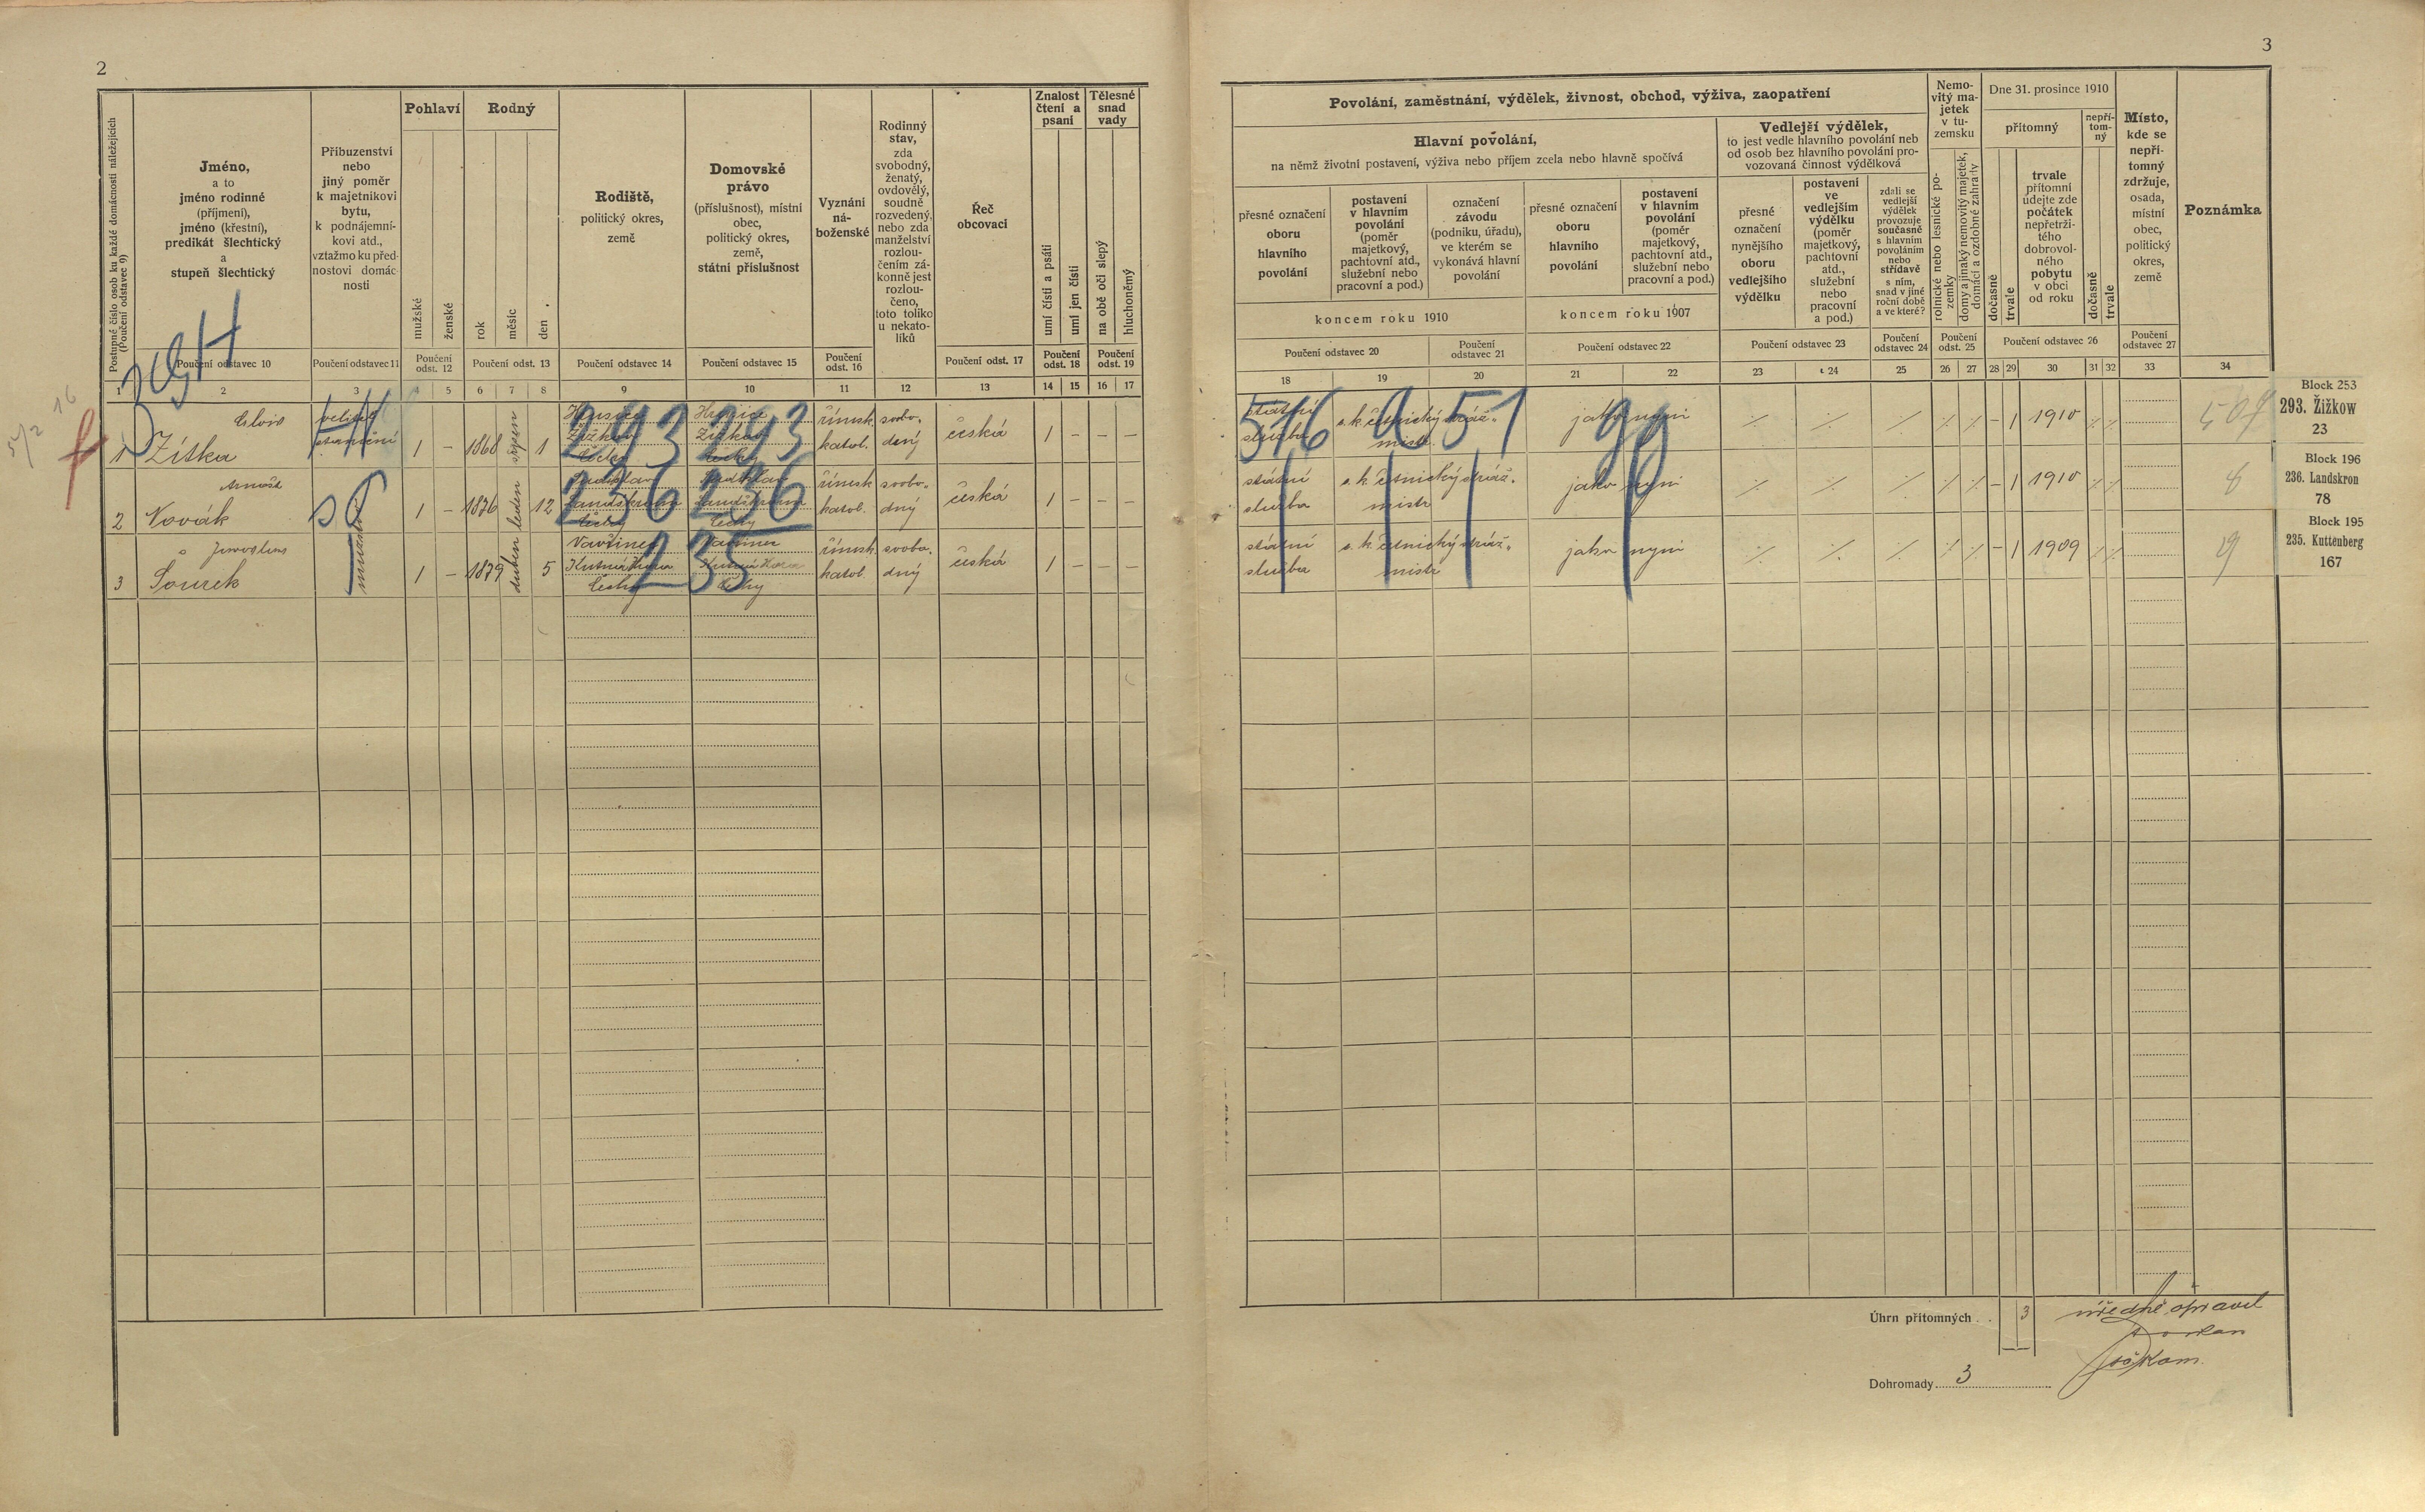 2
Postupné číslo osob ku každé domácnosti náležejících
(Poučení odstavec 9)
Jméno,
a to
jméno rodinné
(příjmení),
jméno (křestní),
predikát šlechtický
a
stupeň šlechtický
Příbuzenství
nebo
jiný poměr
k majetníkovi
bytu,
k podnájemní-
kovi atd.,
vztažmo ku před-
nostovi domác-
nosti
Pohlaví
mužské
ženské
Rodný
rok
měsíc
den
Rodiště,
politický okres,
země
Domovské
právo
(příslušnost), místní
obec,
politický okres,
země,
státní příslušnost
Vyznání
ná-
boženské
Rodinný
stav,
zda
svobodný,
ženatý,
ovdovělý,
soudně
rozvedený,
nebo zda
manželství
rozlou-
čením zá-
konně jest
rozlou-
čeno,
toto toliko
u nekato-
líků
Řeč
obcovací
Znalost
čtení a
psaní
umí čísti a psáti
umí jen čísti
Tělesné
snad
vady
na obě oči slepý
hluchoněmý
Poučení odstavec 10
Poučení odstavec 11
Poučení
odst. 12
Poučení odst. 13
Poučení odstavec 14
Poučení odstavec 15
Poučení
odst. 16
Poučení odst. 17
Poučení
odst. 18
Poučení
odst. 19
1 2 3 4 5 6 7 8 9 10 11 12 13 14 15 16 17
1 Alois
Zítka
velitel
stanice
1 – 1868 srpen 1
Hrusice
Žižkov
Čechy
Hrusice
Žižkov
Čechy
293 293
římsk.
katol.
svobo-
dný
česká
1 – – –
2 Arnošt
Novák
mužstvo
1 – 1876 leden 12
Landškroun
Čechy
Landškroun
Čechy
236 236
římsk.
katol.
svobo-
dný
česká
1 – – –
3 Jaroslav
Sourek
1 – 1879 duben 5
Vavřinec
Kutná Hora
Čechy
Vavřinec
Kutná Hora
Čechy
235
římsk.
katol.
svobo-
dný
česká
1 – – –
3
Povolání, zaměstnání, výdělek, živnost, obchod, výživa, zaopatření
Hlavní povolání,
na němž životní postavení, výživa nebo příjem zcela nebo hlavně spočívá
přesné označení
oboru
hlavního
povolání
postavení
v hlavním
povolání
(poměr
majetkový,
pachtovní atd.,
služební nebo
pracovní a pod.)
označení
závodu
(podniku, úřadu),
ve kterém se
vykonává hlavní
povolání
koncem roku 1910
přesné označení
oboru
hlavního
povolání
postavení
v hlavním
povolání
(poměr
majetkový,
pachtovní atd.,
služební nebo
pracovní a pod.)
koncem roku 1907
Vedlejší výdělek,
to jest vedle hlavního povolání neb
od osob bez hlavního povolání pro-
vozovaná činnost výdělková
přesné
označení
nynějšího
oboru
vedlejšího
výdělku
postavení
ve
vedlejším
výdělku
(poměr
majetkový,
pachtovní
atd.,
služební
nebo
pracovní
a pod.)
zdali se
vedlejší
výdělek
provozuje
současně
s hlavním
povoláním
nebo
střídavě
s ním,
snad v jiné
roční době
a ve které?
Nemo-
vitý ma-
jetek
v tu-
zemsku
rolnické nebo lesnické po-
zemky
domy a jinaký nemovitý majetek,
domácí a ozdobné zahrady
Dne 31. prosince 1910
přítomný
dočasně
trvale
trvale
přítomní
udejte zde
počátek
nepřetrži-
tého
dobrovol-
ného
pobytu
v obci
od roku
nepří-
tom-
ný
dočasně
trvale
Místo,
kde se
nepří-
tomný
zdržuje,
osada,
místní
obec,
politický
okres,
země
Poznámka
Poučení odstavec 20
Poučení
odstavec 21
Poučení odstavec 22
Poučení odstavec 23
Poučení
odstavec 24
Poučení
odst. 25
Poučení odstavec 26
Poučení
odstavec 27
18 19 20 21 22 23 24 25 26 27 28 29 30 31 32 33 34
státní
služba
c. k. četnický stráž-
mistr
jako nyní
516 a 51
– 1 1910
507
Block 253
293. Žižkow
23
státní
služba
c. k. četnický stráž-
mistr
jako nyní
– 1 1910
8
Block 196
236. Landskron
78
státní
služba
c. k. četnický stráž-
mistr
jako nyní
– 1 1909
9
Block 195
235. Kuttenberg
167
Úhrn přítomných . . 3
úředně opravil
Dohromady 3